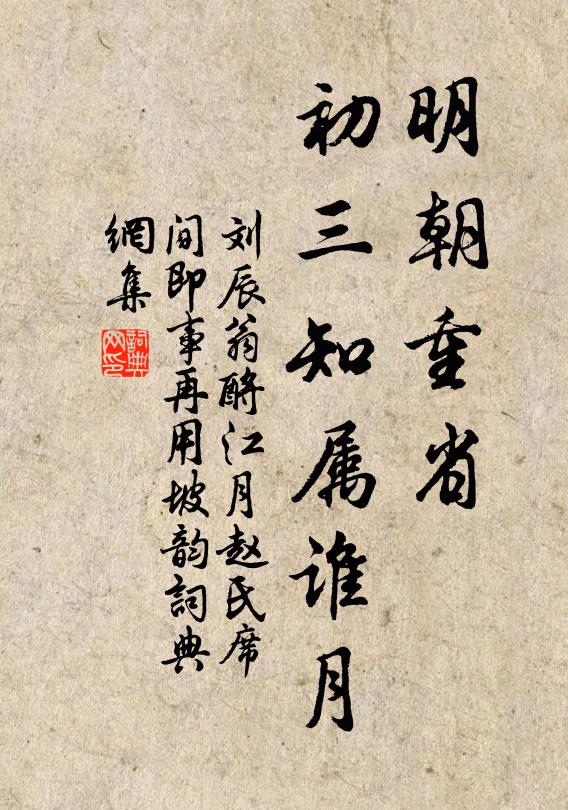 明朝重省
初三知属谁月
刘辰翁酹江月赵氏席
间即事再用坡韵詞典
網集
詞典网印